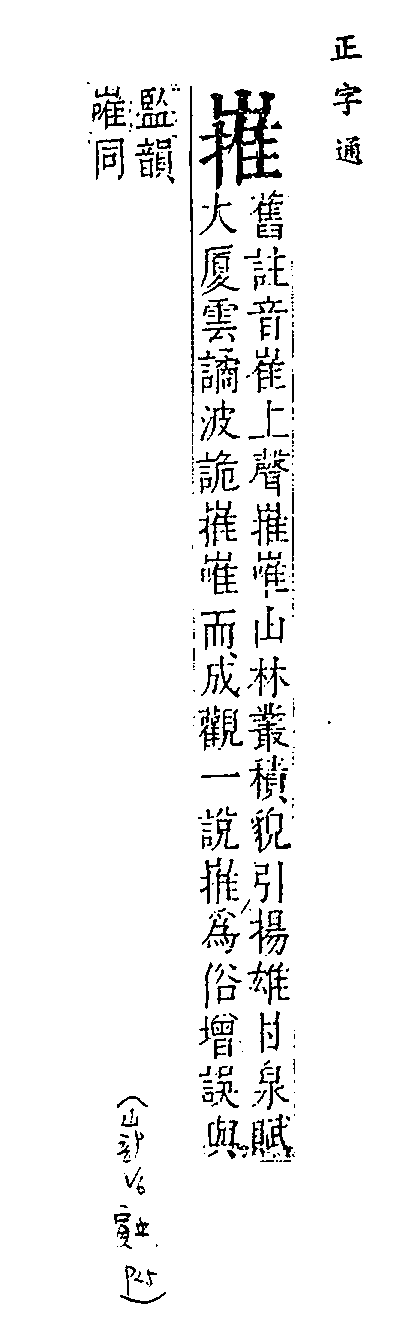 正字通
嶊
舊註音崔上聲嶊嶉山林叢積貌引揚雄甘泉賦
大厦雲譎波詭嶊嶉而成觀一說嶊爲俗增誤與
監韻
嶉同
(山部 V6 寅 P25)